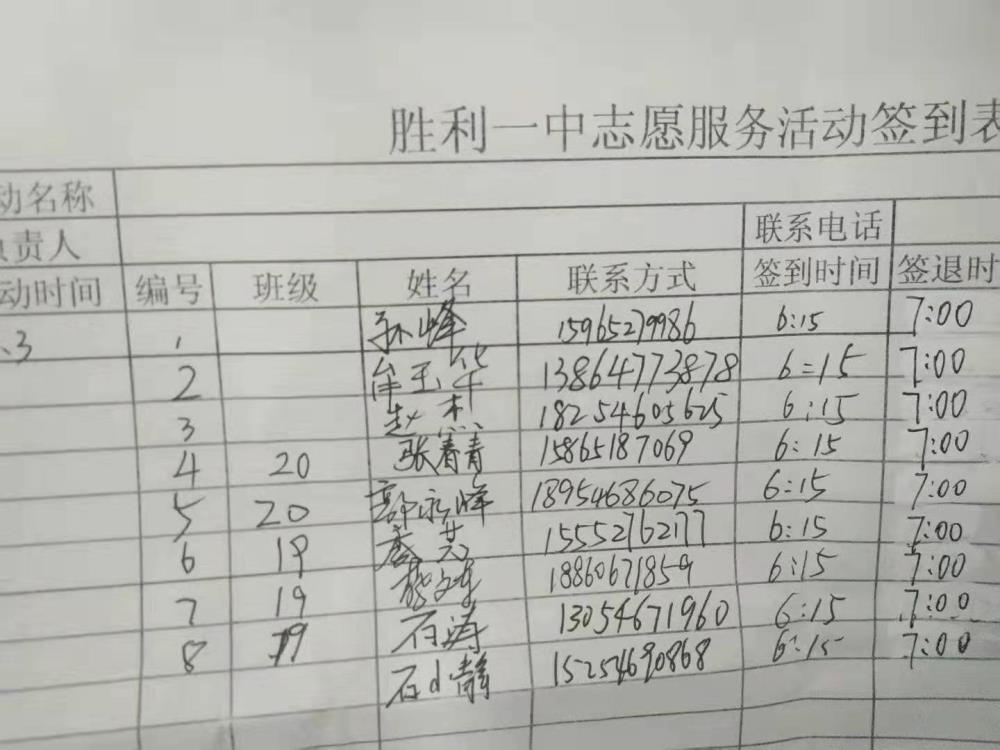 胜利一中志愿服务活动签到表
动名称
负责人 联系电话
动时间 编号 班级 姓名 联系方式 签到时间 签退时
.3 1 孙峰 15965279986 6:15 7:00
2 牟玉华 13864773878 6:15 7:00
3 赵杰 18254605625 6:15 7:00
4 20 张春青 15865187069 6:15 7:00
5 20 郭永峰 18954686075 6:15 7:00
6 19 15552762177 6:15 7:00
7 19 18860671859 6:15 7:00
8 19 石涛 13054671960 6:15 7:00
石 静 15254690868 6:15 7:00